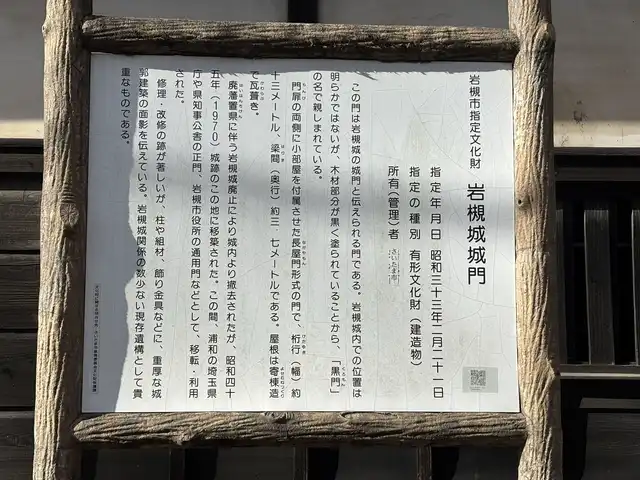 岩槻市指定文化財
岩槻城城門
指定年月日 昭和三十三年二月二十一日
指定の種別 有形文化財（建造物）
所有（管理）者 さいたま市
この門は岩槻城の城門と伝えられる門である。岩槻城内での位置は
明らかではないが、木材部分が黒く塗られていることから、「黒門」
の名で親しまれている。
門扉の両側に小部屋を付属させた長屋門形式の門で、桁行（幅）約
十三メートル、梁間（奥行）約三．七メートルである。屋根は寄棟造
で瓦葺き。
廃藩置県に伴う岩槻城廃止により城内より撤去されたが、昭和四十
五年（1970）城跡のこの地に移築された。この間、浦和の埼玉県
庁や県知事公舎の正門、岩槻市役所の通用門などとして、移転・利用
された。
修理・改修の跡が著しいが、柱や組材、飾り金具などに、重厚な城
郭建築の面影を伝えている。岩槻城関係の数少ない現存遺構として貴
重なものである。